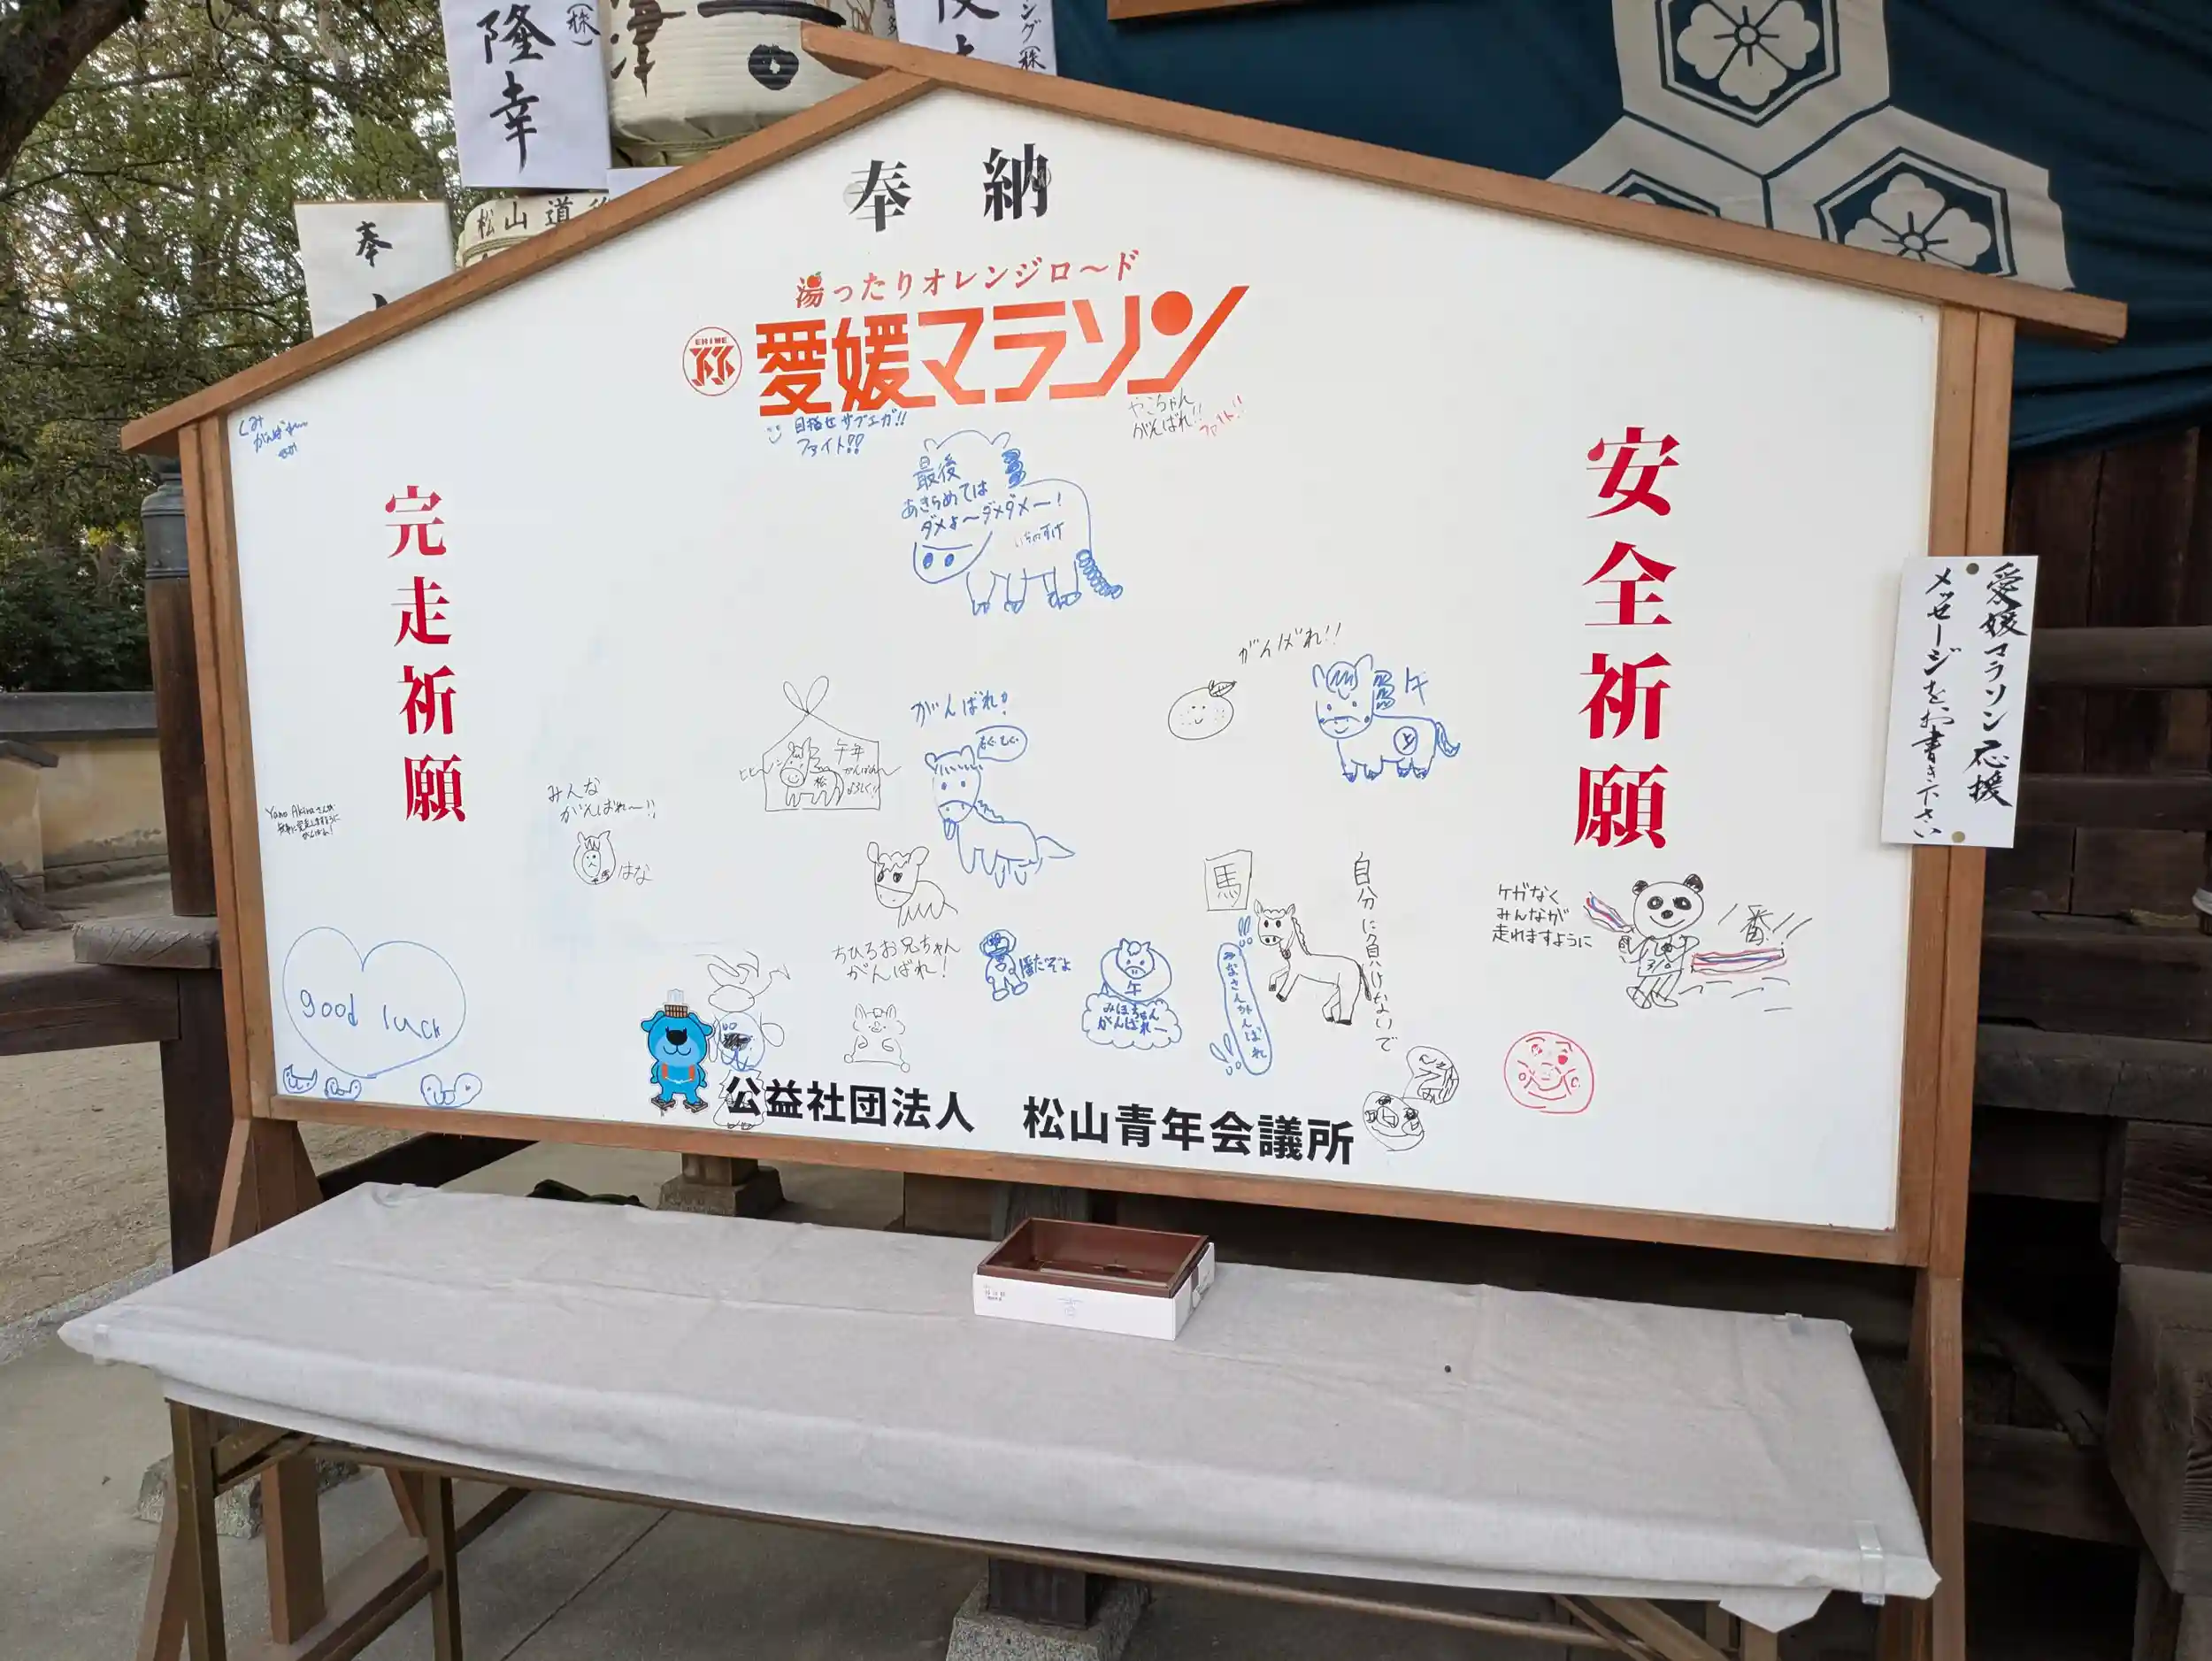 隆幸
㈱
奉
松山道
奉納
湯ったりオレンジロ〜ド
EHIME
愛媛マラソン
完走祈願
安全祈願
愛媛マラソン応援
メッセージをお書き下さい
がんばれー
目指せサブエガ!!
ファイト!!
やこちゃん
がんばれ!!
ファイト!!
最後
あきらめては
ダメよ〜ダメダメー!
いちのすけ
がんばれ!!
午
がんばれ!
午年
松
ヒヒーン
みんな
がんばれ〜!!
はな
Yano Akiraさんが
がんばれ!
good luck
ちひろお兄ちゃん
がんばれ!
午
みほちゃん
がんばれー
みなさんがんばれ
馬
自分に負けないで
ケガなく
みんなが
走れますように
一番!!
公益社団法人 松山青年会議所